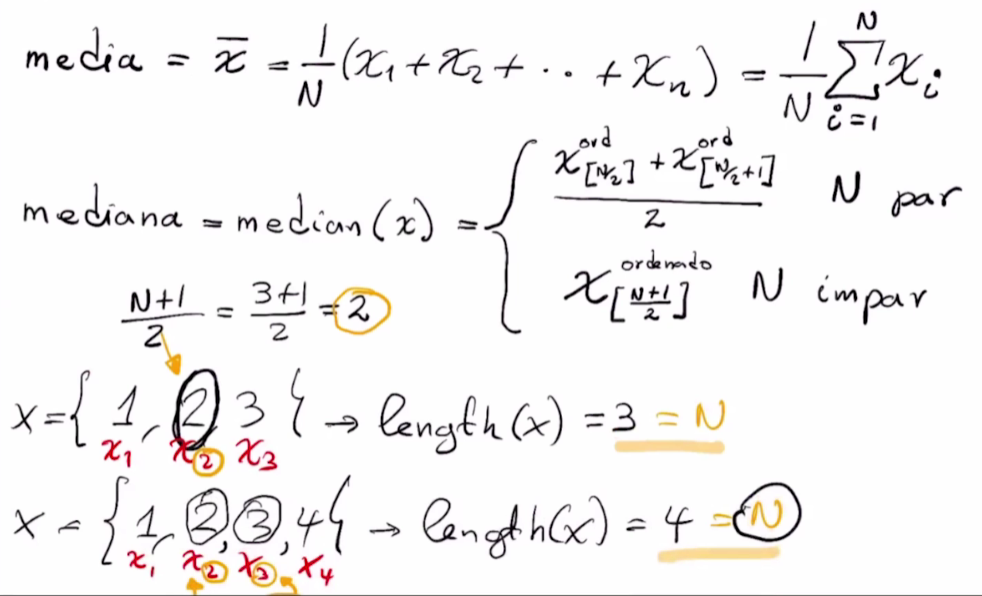 media = x̄ = 1/N (x₁ + x₂ + ·· + xₙ) = 1/N ∑ᵢ₌₁ᴺ xᵢ
mediana = median(x) = { (x^ord_[N/2] + x^ord_[N/2+1]) / 2 N par
x^ordenado_[(N+1)/2] N impar
(N+1)/2 = (3+1)/2 = 2
x = { 1, 2, 3 } → length(x) = 3 = N
x₁ x₂ x₃
x = { 1, 2, 3, 4 } → length(x) = 4 = N
x₁ x₂ x₃ x₄